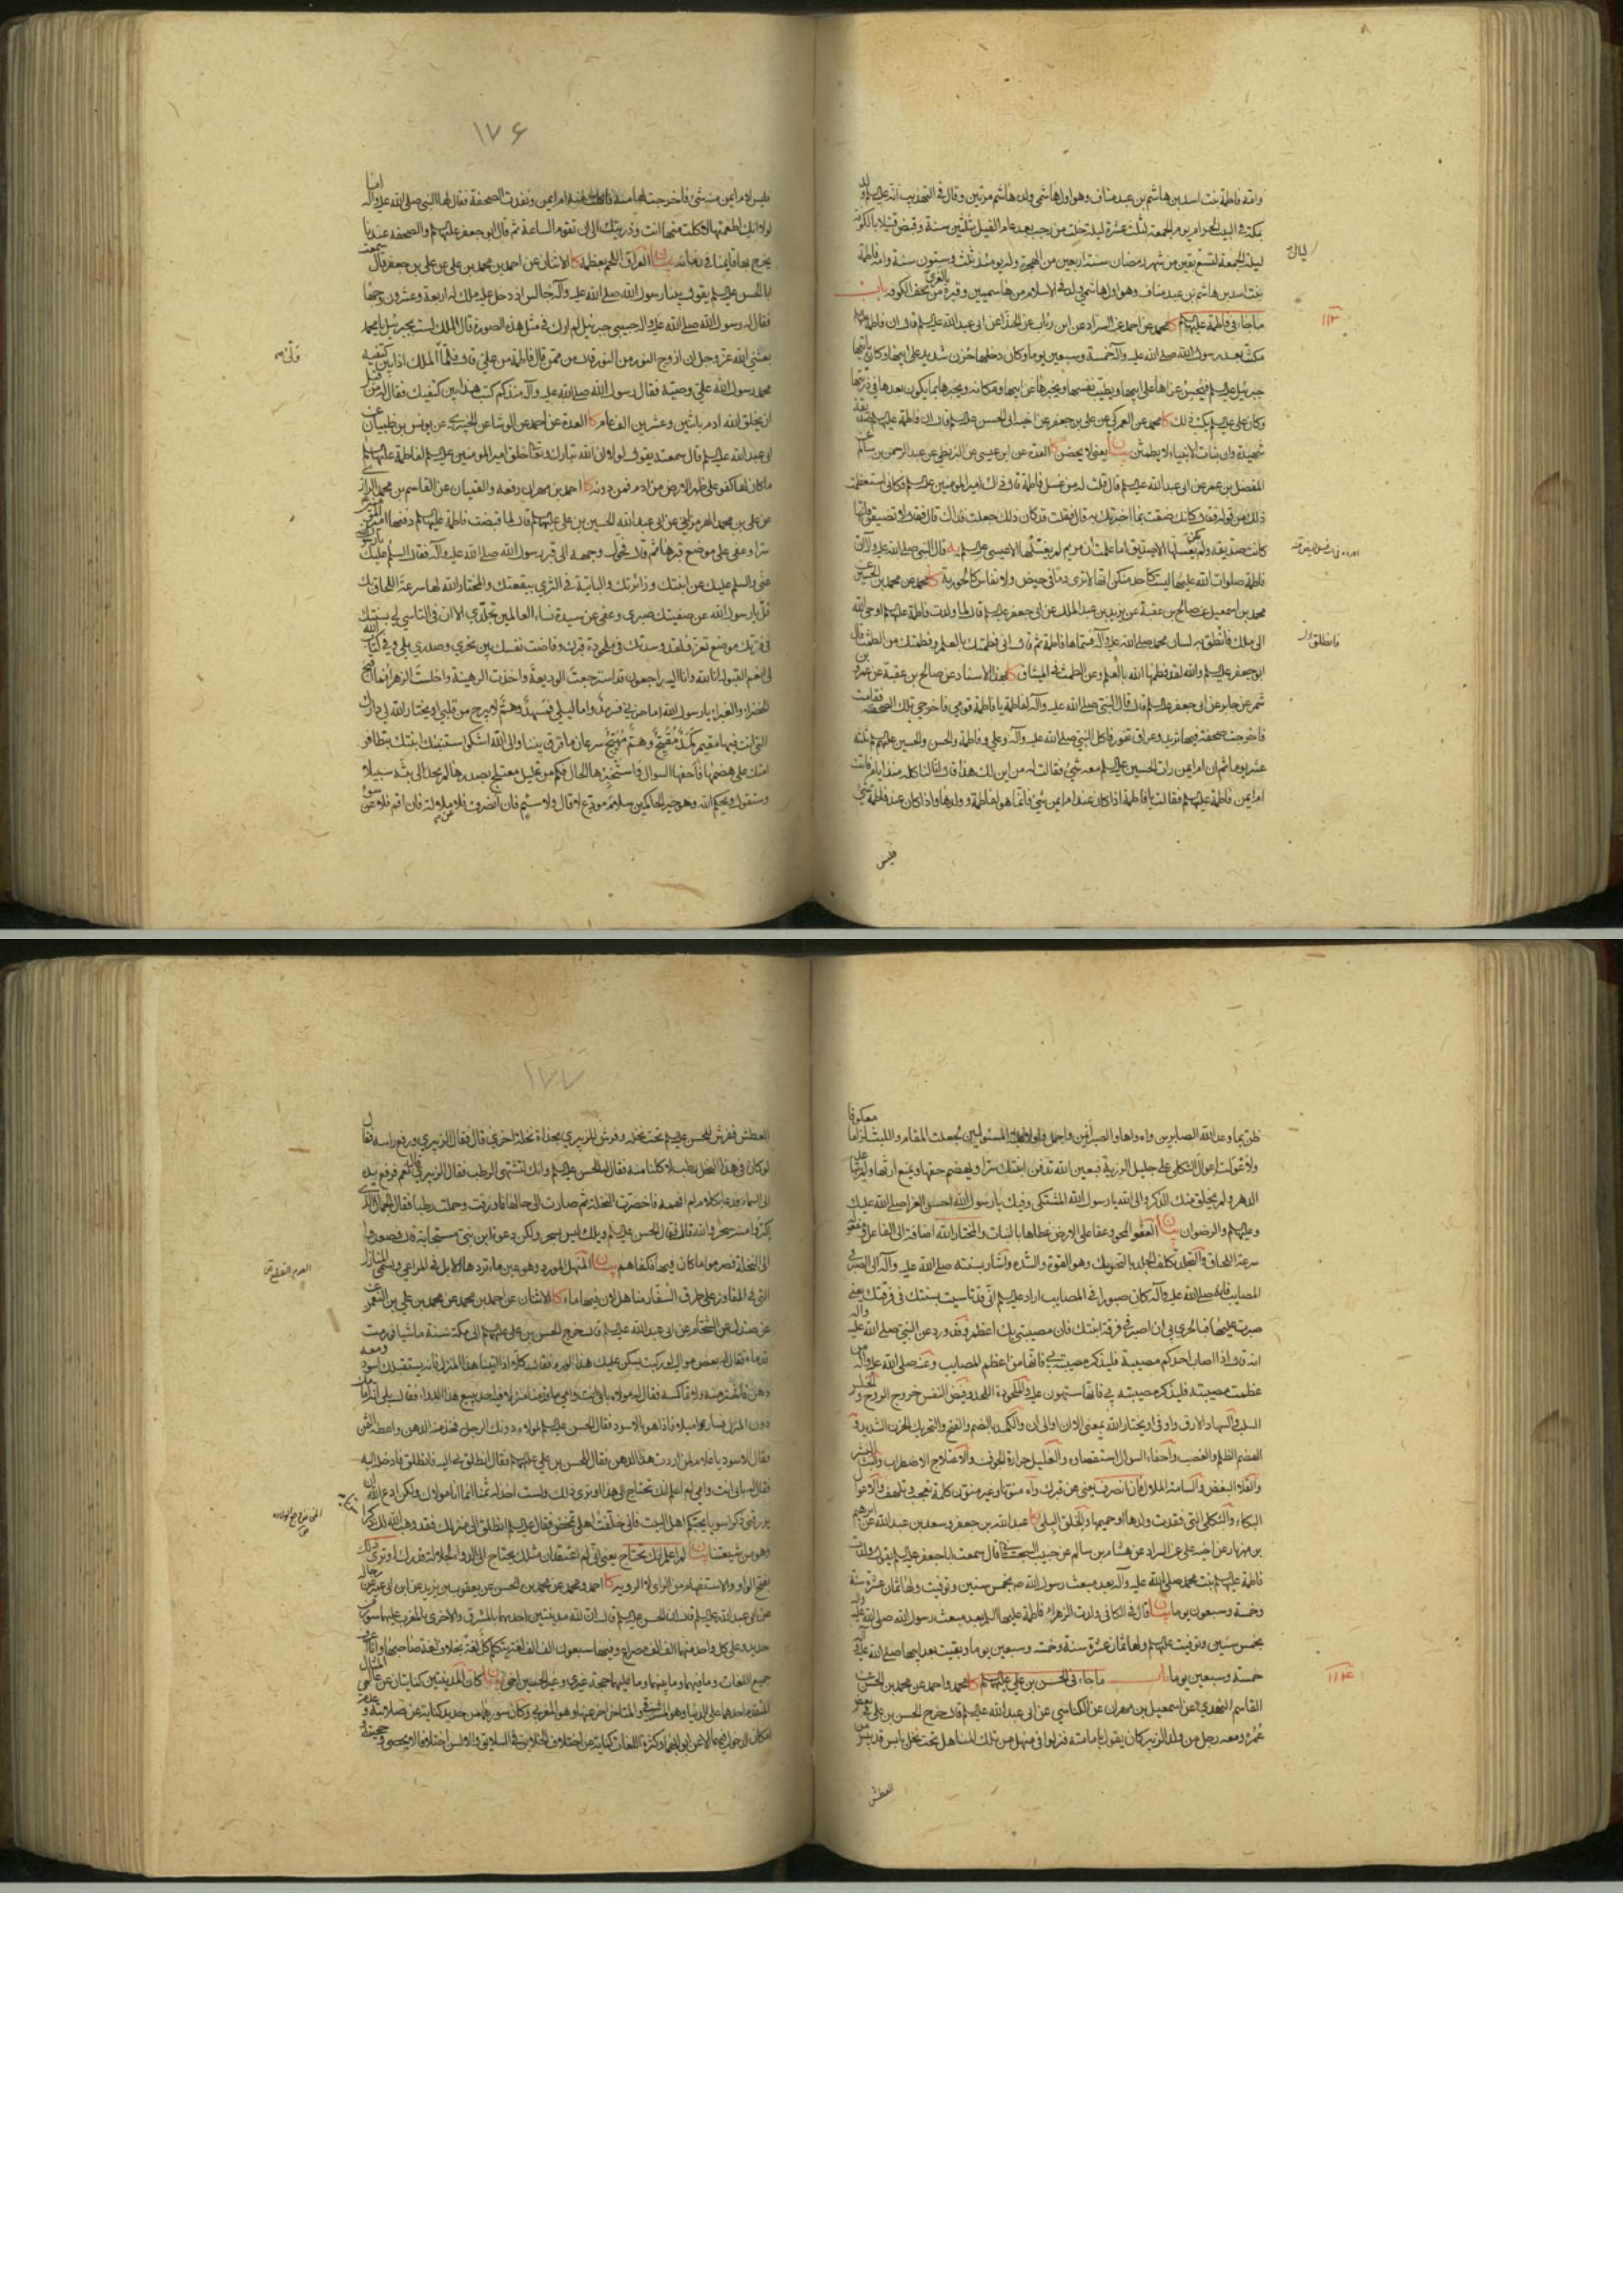 وامه فاطمة بنت اسد بن هاشم بن عبد مناف وهو اول هاشمي ولده هاشم مرتين وقال في التهذيب انه عليه السلم ولد
بمكة في البيت الحرام يوم الجمعة لثلث عشرة ليلة خلت من رجب بعد عام الفيل بثلثين سنة وقبض قتيلا بالكوفة
ليلة الجمعة لتسع بقين من شهر رمضان سنة اربعين من الهجرة وله يومئذ ثلث وستون سنة وامه فاطمة
بنت اسد بن هاشم بن عبد مناف وهو اول هاشمي ولد في الاسلام من هاشميين وقبره بالغري من نجف الكوفة باب
ما جاء في فاطمة عليها السلم كا محمد عن احمد عن السراد عن ابن رئاب عن الحذا عن ابي عبد الله عليه السلم قال ان فاطمة
مكثت بعد رسول الله صلى الله عليه وآله خمسة وسبعين يوما وكان دخلها حزن شديد على ابيها وكان ياتيها
جبرئيل عليه السلم فيحسن عزاها على ابيها ويطيب نفسها ويخبرها عن ابيها ومكانه ويخبرها بما يكون بعدها في ذريتها
وكان علي عليه السلم يكتب ذلك كا محمد عن العمركي عن علي بن جعفر عن اخيه ابي الحسن عليه السلم قال ان فاطمة عليها السلم صديقة
شهيدة وان بنات الانبياء لا يطمثن بيان يعني لا يحضن كا العدة عن ابن عيسى عن البزنطي عن عبد الرحمن بن سالم عن
المفضل بن عمر عن ابي عبد الله عليه السلم قال قلت له من غسل فاطمة قال ذاك امير المؤمنين عليه السلم فكاني استعظمت
ذلك من قوله فقال كانك ضقت بما اخبرتك به قال فقلت قد كان ذلك جعلت فداك قال فقال لا تضيقن فانها
كانت صديقة ولم يكن يغسلها الا صديق اما علمت ان مريم لم يغسلها الا عيسى عليه السلم يه قال النبي صلى الله عليه وآله ان
فاطمة صلوات الله عليها ليست كاحد منكن انها لا ترى دما في حيض ولا نفاس كالحورية كا محمد عن محمد بن الحسين عن
محمد بن اسمعيل عن صالح بن عقبة عن يزيد بن عبد الملك عن ابي جعفر عليه السلم قال لما ولدت فاطمة عليها السلم اوحى الله
الى ملك فانطق به لسان محمد صلى الله عليه وآله فسماها فاطمة ثم قال اني فطمتك بالعلم وفطمتك من الطمث ثم قال
ابو جعفر عليه السلم والله لقد فطمها الله بالعلم وعن الطمث في الميثاق كا بهذا الاسناد عن صالح بن عقبة عن عمرو بن
شمر عن جابر عن ابي جعفر عليه السلم قال قال النبي صلى الله عليه وآله لفاطمة يا فاطمة قومي فاخرجي تلك الصحفة فقامت
فاخرجت صحفة فيها ثريد وعراق تفور فاكل النبي صلى الله عليه وآله وعلي وفاطمة والحسن والحسين عليهم السلم ثلثة
عشر يوما ثم ان ام ايمن رات الحسين عليه السلم معه شيء فقالت له من اين لك هذا قال انا لناكله منذ ايام فاتت
ام ايمن فاطمة عليها السلم فقالت يا فاطمة اذا كان عند ام ايمن شيء فانما هو لفاطمة وولدها واذا كان عند فاطمة شيء
فليس
ليال
١١٣
فانطلق
١٧۶
فليس لام ايمن منه شيء فاخرجت لها منه فاكلت منه ام ايمن ونفدت الصحفة فقال لها النبي صلى الله عليه وآله اما
لولا انك اطعمتها لاكلت منها انت وذريتك الى ان تقوم الساعة ثم قال ابو جعفر عليه السلم والصحفة عندنا
يخرج بها قائمنا في زمانه بيان العراق اللحم بعظمه كا الاثنان عن احمد بن محمد بن علي عن علي بن جعفر قال سمعت
ابا الحسن عليه السلم يقول بينا رسول الله صلى الله عليه وآله جالس اذ دخل عليه ملك له اربعة وعشرون وجها
فقال له رسول الله صلى الله عليه وآله حبيبي جبرئيل لم ارك في مثل هذه الصورة قال الملك لست بجبرئيل يا محمد
بعثني الله عز وجل ان ازوج النور من النور قال من ممن قال فاطمة من علي قال فلما ولى الملك اذا بين كتفيه
محمد رسول الله علي وصيه فقال رسول الله صلى الله عليه وآله منذ كم كتب هذا بين كتفيك فقال من قبل
ان يخلق الله ادم باثنين وعشرين الف عام كا العدة عن احمد عن الوشا عن الخيبري عن يونس بن ظبيان عن
ابي عبد الله عليه السلم قال سمعته يقول لولا ان الله تبارك وتعالى خلق امير المومنين عليه السلم لفاطمة عليها السلم
ما كان لها كفو على ظهر الارض من ادم فمن دونه كا احمد بن مهران رفعه والقميان عن القاسم بن محمد الرازي
عن علي بن محمد الهرمزاني عن ابي عبد الله الحسين بن علي عليهما السلم قال لما قبضت فاطمة عليها السلم دفنها امير المؤمنين
سرا وعفى على موضع قبرها ثم قال فحول وجهه الى قبر رسول الله صلى الله عليه وآله فقال السلم عليك يا رسول الله
عني والسلم عليك عن ابنتك وزائرتك والبائتة في الثرى ببقعتك والمختار الله لها سرعة اللحاق بك
قل يا رسول الله عن صفيتك صبري وعفى عن سيدة نساء العالمين تجلدي الا ان في التاسي لي بسنتك
في فرقتك موضع تعز فلقد وسدتك في ملحودة قبرك وفاضت نفسك بين نحري وصدري بلى وفي كتاب الله
لي انعم القبول انا لله وانا اليه راجعون قد استرجعت الوديعة واخذت الرهينة واخلست الزهراء فما اقبح
الخضراء والغبراء يا رسول الله اما حزني فسرمد واما ليلي فمسهد وهم لا يبرح من قلبي او يختار الله لي دارك
التي انت فيها مقيم كمد مقيح وهم مهيج سرعان ما فرق بيننا والى الله اشكو وستنبئك ابنتك بتظافر
امتك على هضمها فاحفها السوال واستخبرها الحال فكم من غليل معتلج بصدرها لم تجد الى بثه سبيلا
وستقول ويحكم الله وهو خير الحاكمين سلام مودع لا قال ولا سئم فان انصرف فلا من ملالة وان اقم فلا عن سوء
ظن بما وعد الله الصابرين واه واها والصبر ايمن واجمل ولولا غلبة المستولين لجعلت المقام واللبث لزاما معكوفا
ولاعولت اعوال الثكلى على جليل الرزية فبعين الله تدفن ابنتك سرا ويهضم حقها ويمنع ارثها ولم يتباعد
الدهر ولم يخلق منك الذكر والى الله يا رسول الله المشتكى وفيك يا رسول الله احسن العزا صلى الله عليك
وعليها السلم والرضوان بيان العفو المحو وعفا على الارض غطاها بالنبات والمختار الله اضافة الى الفاعل
سرعة اللحاق والتجلد تكلف الجلد بالتحريك وهو القوة والشدة واشار بسنته صلى الله عليه وآله الى الصبر في
المصايب فانه صلى الله عليه وآله كان صبورا في المصايب اراد عليه السلم اني قد تاسيت بسنتك في فرقتك يعني
صبرت عليها فبالحري بي ان اصبر في فرقة ابنتك فان مصيبتي بك اعظم وقد ورد عن النبي صلى الله عليه وآله
انه قال اذا اصاب احدكم مصيبة فليذكر مصيبته بي فانها من اعظم المصايب وعنه صلى الله عليه وآله من
عظمت مصيبته فليذكر مصيبته بي فانها ستهون عليه والملحودة اللحد وفيض النفس خروج الروح والخلس
السلب والسهاد الارق واو في او يختار الله بمعنى الا ان او الى ان والكمد بالضم والفتح والتحريك الحزن الشديد و
الهضم الظلم والغصب واحفاء السوال استقصاءه والغليل حرارة الجوف والاعتلاج الاضطراب والبث النشر
والقلاء البغض والسامة الملال فان انصرف يعني عن قبرك واه منونا وغير منون كلمة تعجب وتلهف والاعوال
البكاء والثكلى التي فقدت ولدها او حميمها والخلق البلى كا عبد الله بن جعفر وسعد بن عبد الله عن ابرهيم
بن مهزيار عن اخيه علي عن السراد عن هشام بن سالم عن حبيب السجستاني قال سمعت ابا جعفر عليه السلم يقول ولدت
فاطمة عليها السلم بنت محمد صلى الله عليه وآله بعد مبعث رسول الله ص بخمس سنين وتوفيت ولها ثمان عشرة سنة
وخمسة وسبعون يوما بيان قال في الكافي ولدت الزهراء فاطمة عليها السلم بعد مبعث رسول الله صلى الله عليه وآله
بخمس سنين وتوفيت عليها السلم ولها ثمان عشرة سنة وخمسة وسبعين يوما وبقيت بعد ابيها صلى الله عليه وآله
خمسة وسبعين يوما باب ما جاء في الحسن بن علي عليهما السلم كا محمد واحمد عن محمد بن الحسن عن
القاسم النهدي عن اسمعيل بن مهران عن الكناسي عن ابي عبد الله عليه السلم قال خرج الحسن بن علي في بعض
عمره ومعه رجل من ولد الزبير كان يقول بامامته فنزلوا في منهل من تلك المناهل تحت نخل يابس قد يبس من
العطش
١١٤
١٧٧
العطش ففرش للحسن عليه السلم تحت نخلة وفرش للزبيري بحذاه نخلة اخرى قال فقال الزبيري ورفع راسه فقال
لو كان في هذا النخل رطب لاكلنا منه فقال له الحسن عليه السلم وانك لتشتهي الرطب فقال الزبيري نعم قال فرفع يده
الى السماء فدعا بكلام لم افهمه فاخضرت النخلة ثم صارت الى حالها فاورقت وحملت رطبا فقال الجمال الذي
اكتروا منه سحر والله قال فقال الحسن عليه السلم ويلك ليس بسحر ولكن دعوة ابن نبي مستجابة قال فصعدوا
الى النخلة فصرموا ما كان فيها فكفاهم بيان المنهل المورد وهو عين ماء ترده الابل في المراعي وتسمى المنازل
التي في المفاوز على طرق السفار مناهل لان فيها ماء كا الاثنان عن احمد بن محمد عن محمد بن علي بن النعمن عن
عن صندل عن الشحام عن ابي عبد الله عليه السلم قال خرج الحسن بن علي عليهما السلم الى مكة سنة ماشيا فورمت
قدماه فقال له بعض مواليه لو ركبت لسكن عليك هذا الورم فقال كلا اذا اتينا هذا المنزل فانه يستقبلك اسود ومعه
دهن فاشتر منه ولا تماكسه فقال له مولاه بابي انت وامي ما قدمنا منزلا فيه احد يبيع هذا الدواء فقال بلى انه امامك
دون المنزل فسارا ميلا فاذا هو بالاسود فقال الحسن عليه السلم لمولاه دونك الرجل فخذ منه الدهن واعطه الثمن
فقال الاسود يا غلام لمن اردت هذا الدهن فقال للحسن بن علي عليهما السلم فقال انطلق بي اليه فانطلق فادخله اليه
فقال له بابي انت وامي لم اعلم انك تحتاج الى هذا او ترى ذلك ولست اخذ له ثمنا انما انا مولاك ولكن ادع الله ان
يرزقني ذكرا سويا يحبكم اهل البيت فاني خلفت اهلي تمخض فقال عليه السلم انطلق الى منزلك فقد وهب الله لك ذكرا سويا
وهو من شيعتنا بيان لم اعلم انك تحتاج يعني اني لم اعتقد ان مثلك يحتاج الى الدواء لجلالة قدرك او ترى ذلك
بفتح الواو والاستفهام من الراي او الروية كا احمد ومحمد عن محمد بن الحسن عن يعقوب بن يزيد عن ابن ابي عمير عن رجاله
عن ابي عبد الله عليه السلم قال ان الحسن عليه السلم قال ان لله مدينتين احديهما بالمشرق والاخرى بالمغرب عليهما سور من
حديد وعلى كل واحد منهما الف الف مصراع وفيها سبعون الف الف لغة يتكلم كل لغة بخلاف لغة صاحبها وانا اعرف
جميع اللغات وما فيهما وما بينهما وما عليهما حجة غيري وغير الحسين اخي بيان كان المدينتين كنايتان عن عالمي المثال
المتقدم احدهما على الدنيا وهو المشرقي والمتاخر اخر عنها وهو المغربي وكان سورهما من حديد كناية عن صلابته وعدم
امكان الدخول فيهما الا عن ابوابهما وكثرة اللغات كناية عن اختلاف الخلايق في السلايق والالسن اختلافا لا يحصى